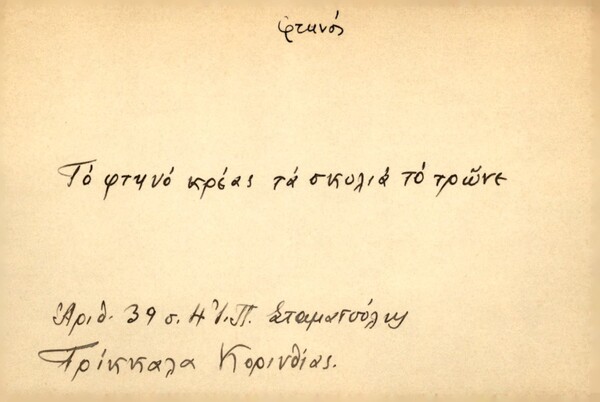 φτηνός
Τό φτηνό κρέας τά σκυλιά τό τρῶνε
Ἀριθ. 39 σ. 4 Ἰ.Π. Σταματούλης
Τρίκκαλα Κορινθίας.